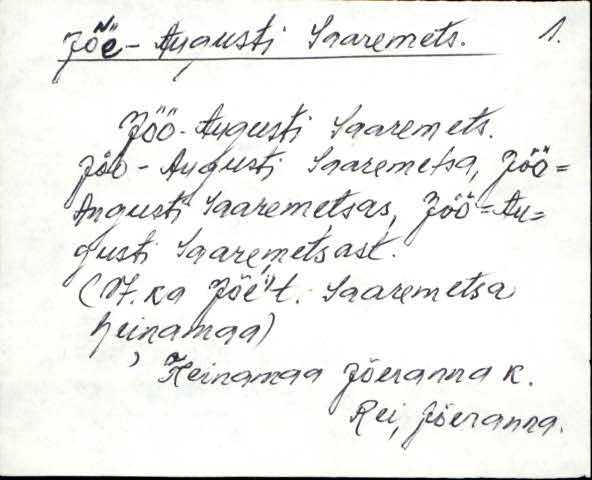 Jõe-Augusti Saaremets. 1.
Jöö-Augusti Saaremets.
Jöö-Augusti Saaremetsa, Jöö=
Augusti Saaremetsas, Jöö=Au=
gusti Saaremetsast.
(V. ka Jõe't. Saaremetsa
heinamaa)
Heinamaa Jõeranna k.
Rei, Jõeranna.